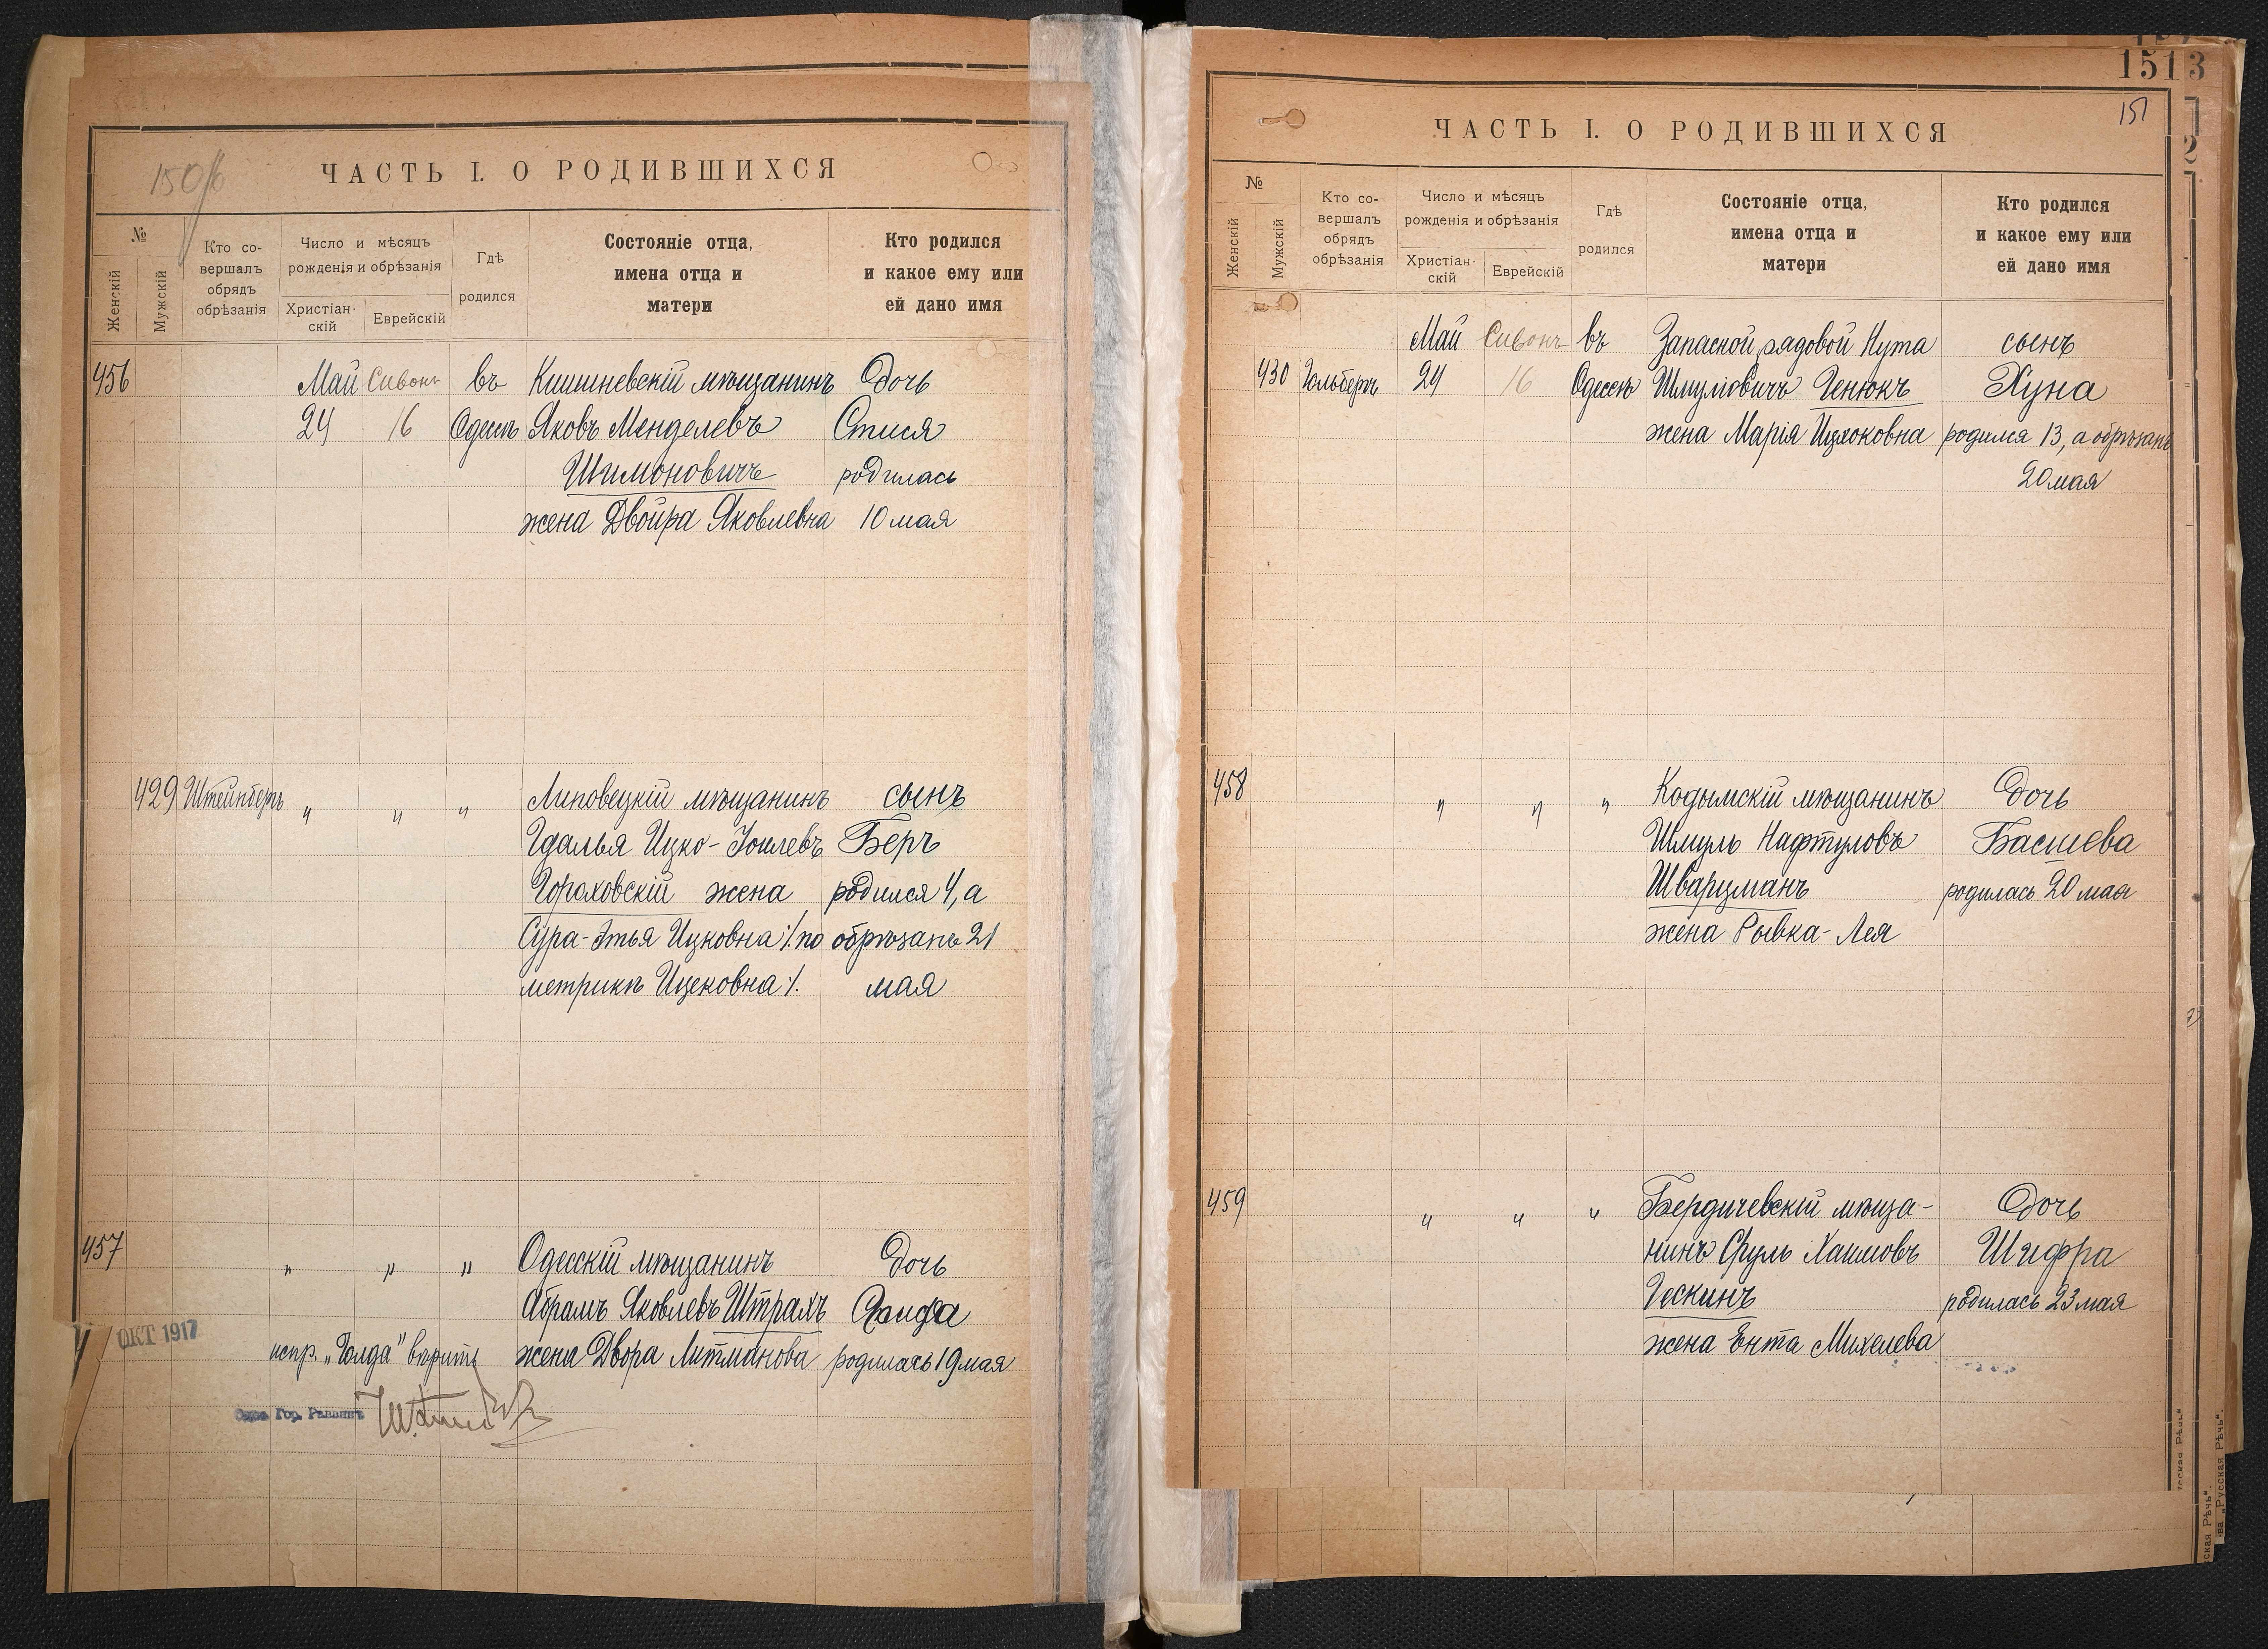 150/б
ЧАСТЬ I. О РОДИВШИХСЯ
№
Женскій
Мужскій
Кто со-
вершалъ
обрядъ
обрѣзанія
Число и мѣсяцъ
рожденія и обрѣзанія
Христіан-
скій
Еврейскій
Гдѣ
родился
Состояніе отца,
имена отца и
матери
Кто родился
и какое ему или
ей дано имя
456 Май Сивонъ въ Кишиневскій мѣщанинъ Дочь
24 16 Одессѣ Яковъ Менделевъ Стися
Шимоновичъ родилась
жена Двойра Яковлевна 10 мая
429 Штейнбергъ " " " Липовецкій мѣщанинъ сынъ
Гдалья Ицко-Іоилевъ Беръ
Гороховскій жена родился 4, а
Сура-Этья Ицковна /. по обрѣзанъ 21
метрикѣ Ицековна ./. мая
457 " " " Одесскій мѣщанинъ Дочь
Абрамъ Яковлевъ Штрахъ
жена Двора Литманова родилась 19 мая
ОКТ 1917
испр. „Голда" вѣрить
Гор. Раввинъ
1513
151
2
ЧАСТЬ I. О РОДИВШИХСЯ
№
Женскій
Мужскій
Кто со-
вершалъ
обрядъ
обрѣзанія
Число и мѣсяцъ
рожденія и обрѣзанія
Христіан-
скій
Еврейскій
Гдѣ
родился
Состояніе отца,
имена отца и
матери
Кто родился
и какое ему или
ей дано имя
Май Сивонъ въ Запасной рядовой Нута сынъ
430 Гольбергъ 24 16 Одессѣ Шмулiовичъ Генюкъ Хуна
жена Марія Ицхоковна родился 13, а обрѣзанъ
20 мая
458 " " " Кодымскій мѣщанинъ Дочь
Шмуль Нафтуловъ Басшева
Шварцманъ родилась 20 мая
жена Рывка-Лея
459 " " " Бердичевскій мѣща-
Дочь
нинъ Сруль Хаимовъ Шифра
Гескинъ родилась 23 мая
жена Ента Михелева
"Русская Рѣчь".